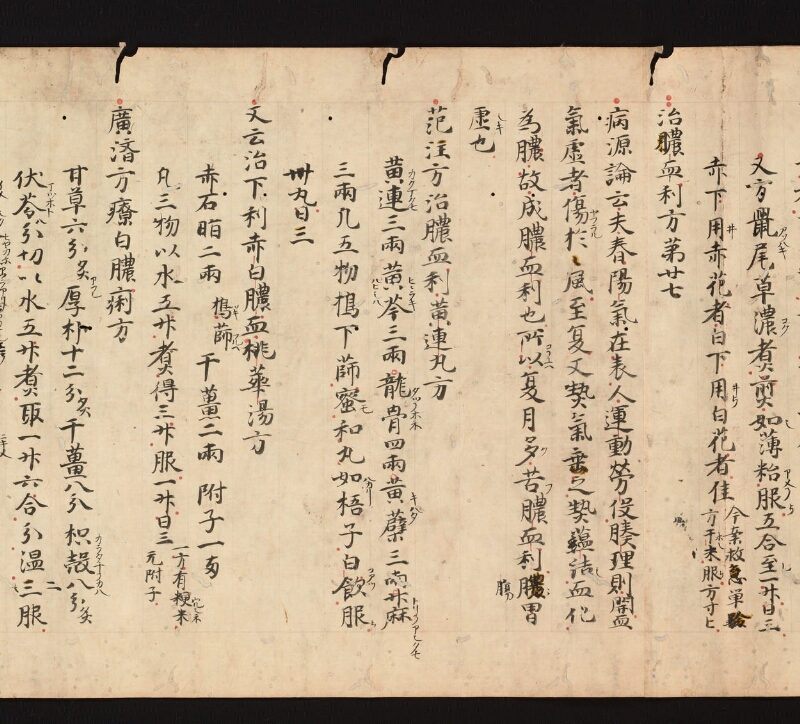 又方鼠尾草濃煮煎如薄粘服五合至一升日三
赤下用赤花者白下用白花者佳
今案救急単驗
方干末服方寸匕
治膿血利方第廿七
病源論云夫春陽氣在表人運動勞伇腠理則開
氣虚者傷於風至夏又熱氣乗之熱蘊結血化
為膿故成膿血利也所以夏月多苦膿血利腸胃
虚也
范汪方治膿血利黄連丸方
黄連三兩黄芩三兩龍骨四兩黄蘗三兩升麻
三兩凡五物搗下篩蜜和丸如梧子白飲服
卅丸日三
又云治下利赤白膿血桃華湯方
赤石脂二兩搗篩干薑二兩附子一兩
凡三物以水五升煮得三升服一升日三
一方有粳米
元附子
廣濟方療白膿痢方
甘草六分炙厚朴十二分炙干薑八分枳殻八分炙
伏苓八分切以水五升煮取一升六合分温三服